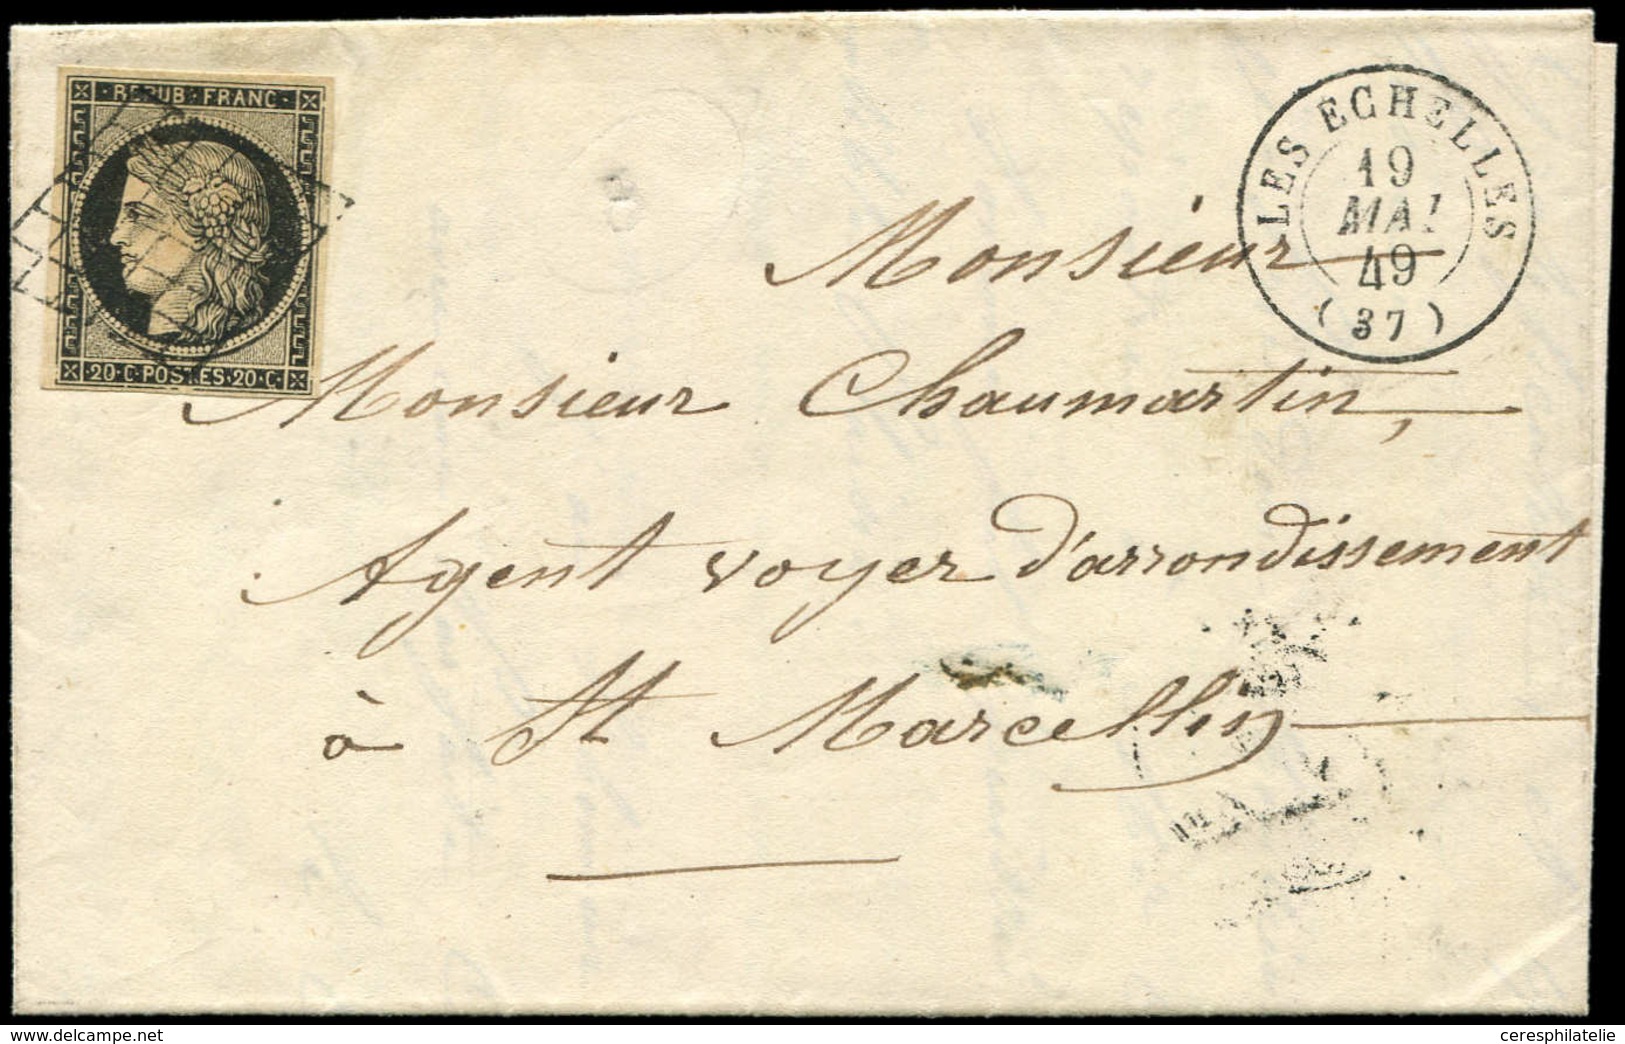 REPUB·FRANC·
20·C·POSTES·20·C·
LES ECHELLES
19
MAI
49
(37)
Monsieur
Monsieur Chaumartin,
Agent voyer d'arrondissement
à St Marcellin
www.delcampe.net
ceresphilatelie